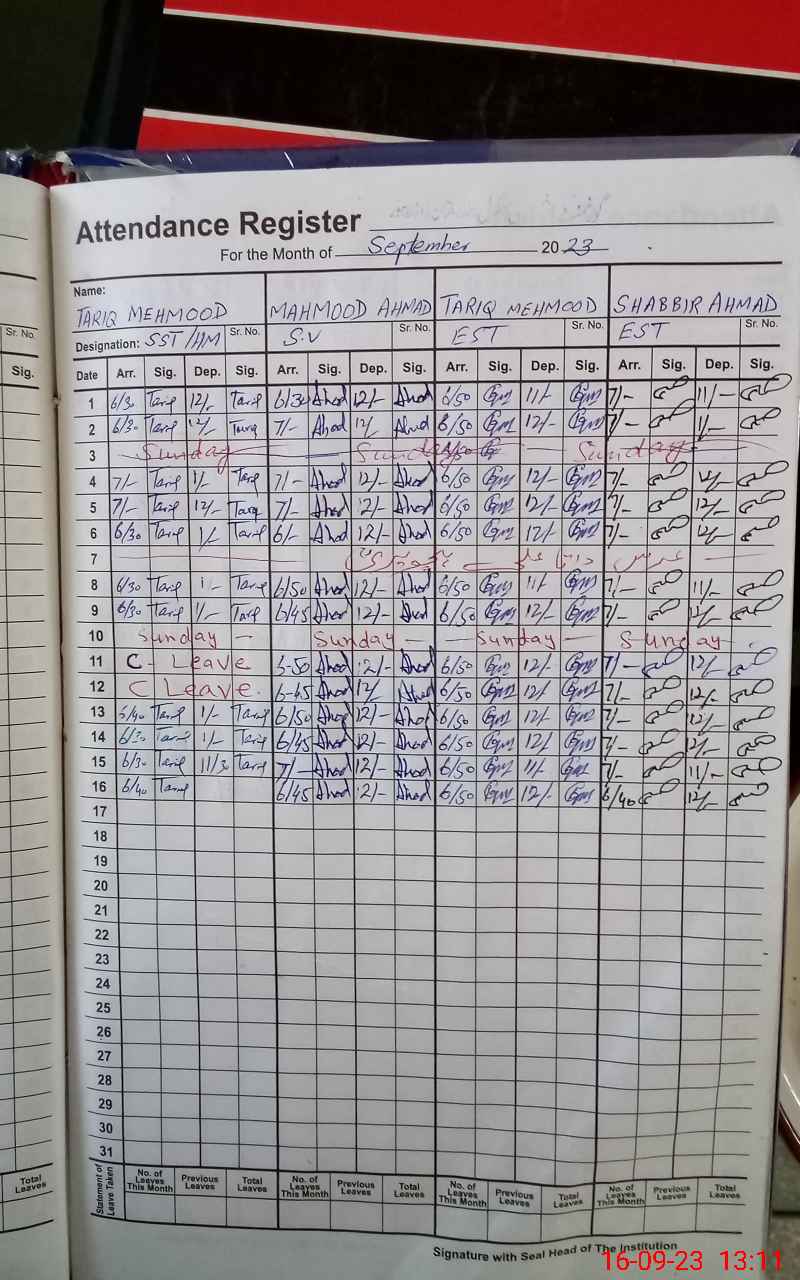 Attendance Register
For the Month of September 2023
Name:
TARIQ MEHMOOD MAHMOOD AHMAD TARIQ MEHMOOD SHABBIR AHMAD
Sr. No. Designation: SST/HM Sr. No. S.V Sr. No. EST Sr. No. EST Sr. No.
Sig. Date Arr. Sig. Dep. Sig. Arr. Sig. Dep. Sig. Arr. Sig. Dep. Sig. Arr. Sig. Dep. Sig.
1 6/30 Tariq 12/- Tariq 6/30 Ahad 12/- Ahad 6/50 11/- 7/- 11/-
2 6/30 Tariq 12/- Tariq 7/- Ahad 12/- Ahad 6/50 12/- 7/- 1/-
3 Sunday Sunday Sunday
4 7/- Tariq 1/- Tariq 7/- Ahad 12/- Ahad 6/50 12/- 7/- 12/-
5 7/- Tariq 12/- Tariq 7/- Ahad 12/- Ahad 6/50 12/- 7/- 12/-
6 6/30 Tariq 1/- Tariq 6/- Ahad 12/- Ahad 6/50 12/- 7/- 12/-
7 عرس داتا علی ہجویری
8 6/30 Tariq 1- Tariq 6/50 Ahad 12/- Ahad 6/50 11/- 7/- 11/-
9 6/30 Tariq 1/- Tariq 6/45 Ahad 12/- Ahad 6/50 12/- 7/- 12/-
10 Sunday - Sunday - Sunday - Sunday
11 C - Leave Ahad 12/- Ahad 6/50 12/- 7/- 12/-
12 C Leave. 6-45 Ahad 12/ Ahad 6/50 12/- 7/- 12/-
13 6/40 Tariq 1/- Tariq 6/50 Ahad 12/- Ahad 6/50 12/- 7/- 12/-
14 6/30 Tariq 1/- Tariq 6/45 Ahad 12/- Ahad 6/50 12/- 7/- 12/-
15 6/30 Tariq 11/30 Tariq 7/- Ahad 12/- Ahad 6/50 11/- 7/- 11/-
16 6/40 Tariq 6/45 Ahad 12/- Ahad 6/50 12/- 6/40 12/-
17
18
19
20
21
22
23
24
25
26
27
28
29
30
31
Total Leaves Statement of Leave Taken No. of Leaves This Month Previous Leaves Total Leaves No. of Leaves This Month Previous Leaves Total Leaves No. of Leaves This Month Previous Leaves Total Leaves No. of Leaves This Month Previous Leaves Total Leaves
Signature with Seal Head of The Institution
16-09-23 13:11